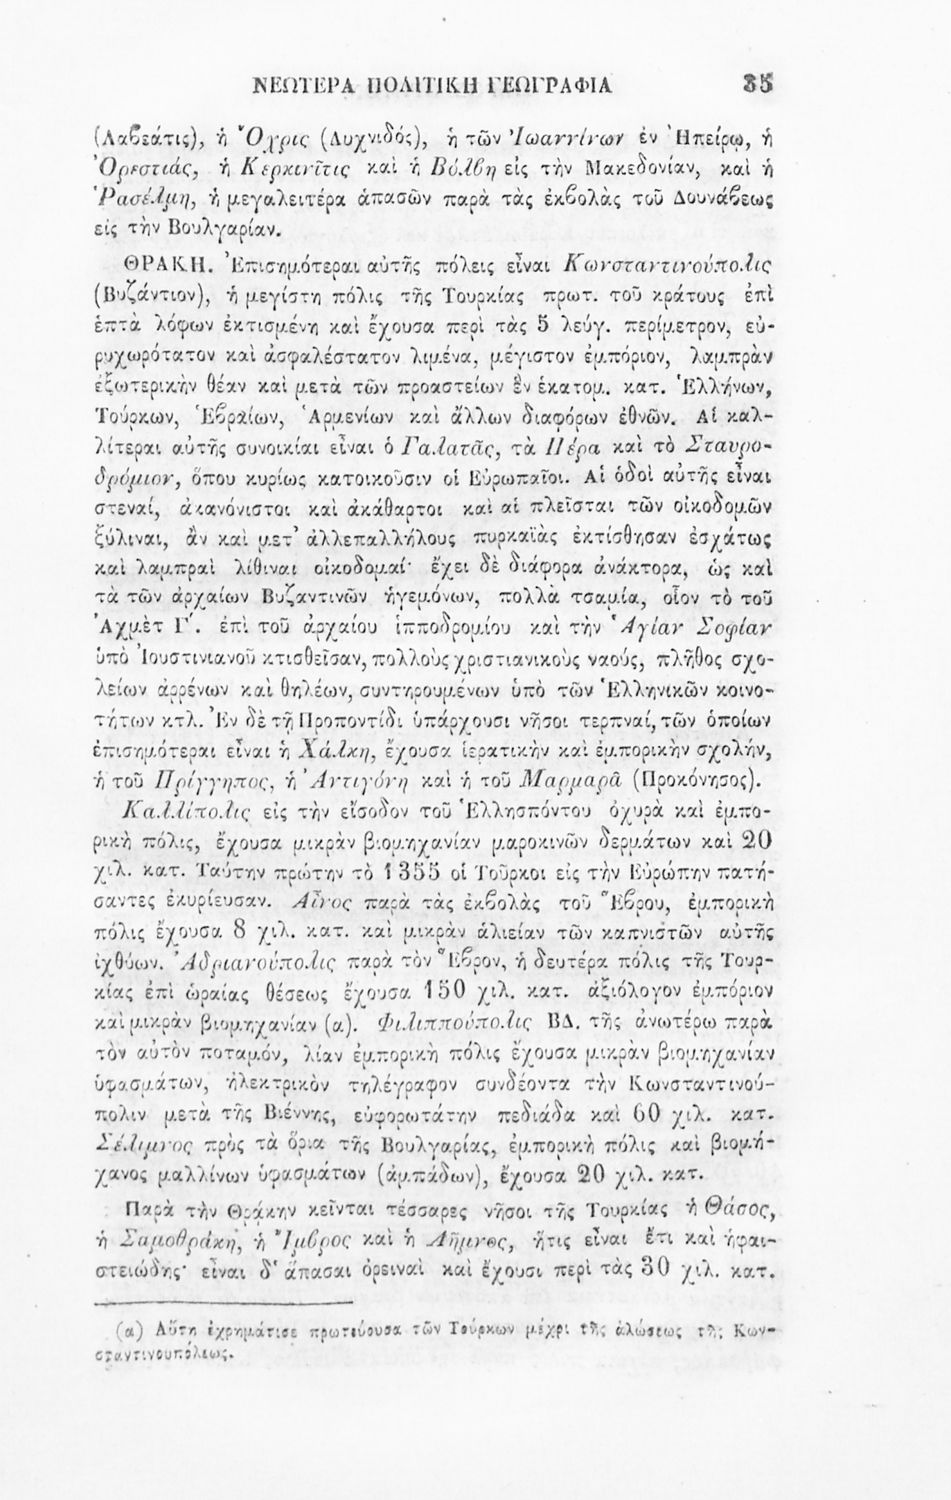 ΝΕΩΤΕΡΑ ΠΟΛΙΤΙΚΗ ΓΕΩΓΡΑΦΙΑ 35
(Λαβεάτις), ἡ Ὄχρις (Λυχνιδός), ἡ τῶν Ἰωαννίνων ἐν Ἠπείρῳ, ἡ
Ὀρεστιάς, ἡ Κερκινῖτις καὶ ἡ Βόλβη εἰς τὴν Μακεδονίαν, καὶ ἡ
Ῥασέλμη, ἡ μεγαλειτέρα ἁπασῶν παρὰ τὰς ἐκβολὰς τοῦ Δουνάβεως
εἰς τὴν Βουλγαρίαν.
ΘΡΑΚΗ. Ἐπισημότεραι αὐτῆς πόλεις εἶναι Κωνσταντινούπολις
(Βυζάντιον), ἡ μεγίστη πόλις τῆς Τουρκίας πρωτ. τοῦ κράτους ἐπὶ
ἑπτὰ λόφων ἐκτισμένη καὶ ἔχουσα περὶ τὰς 5 λεύγ. περίμετρον, εὐ-
ρυχωρότατον καὶ ἀσφαλέστατον λιμένα, μέγιστον ἐμπόριον, λαμπρὰν
ἐξωτερικὴν θέαν καὶ μετὰ τῶν προαστείων ἓν ἑκατομ. κατ. Ἑλλήνων,
Τούρκων, Ἑβραίων, Ἀρμενίων καὶ ἄλλων διαφόρων ἐθνῶν. Αἱ καλ-
λίτεραι αὐτῆς συνοικίαι εἶναι ὁ Γαλατᾶς, τὰ Πέρα καὶ τὸ Σταυρο-
δρόμιον, ὅπου κυρίως κατοικοῦσιν οἱ Εὐρωπαῖοι. Αἱ ὁδοὶ αὐτῆς εἶναι
στεναί, ἀκανόνιστοι καὶ ἀκάθαρτοι καὶ αἱ πλεῖσται τῶν οἰκοδομῶν
ξύλιναι, ἂν καὶ μετ' ἀλλεπαλλήλους πυρκαϊὰς ἐκτίσθησαν ἐσχάτως
καὶ λαμπραὶ λίθιναι οἰκοδομαί· ἔχει δὲ διάφορα ἀνάκτορα, ὡς καὶ
τὰ τῶν ἀρχαίων Βυζαντινῶν ἡγεμόνων, πολλὰ τσαμία, οἷον τὸ τοῦ
Ἀχμὲτ Γ'. ἐπὶ τοῦ ἀρχαίου ἱπποδρομίου καὶ τὴν Ἁγίαν Σοφίαν
ὑπὸ Ἰουστινιανοῦ κτισθεῖσαν, πολλοὺς χριστιανικοὺς ναούς, πλῆθος σχο-
λείων ἀρρένων καὶ θηλέων, συντηρουμένων ὑπὸ τῶν Ἑλληνικῶν κοινο-
τήτων κτλ. Ἐν δὲ τῇ Προποντίδι ὑπάρχουσι νῆσοι τερπναί, τῶν ὁποίων
ἐπισημότεραι εἶναι ἡ Χάλκη, ἔχουσα ἱερατικὴν καὶ ἐμπορικὴν σχολήν,
ἡ τοῦ Πρίγγηπος, ἡ Ἀντιγόνη καὶ ἡ τοῦ Μαρμαρᾶ (Προκόνησος).
Καλλίπολις εἰς τὴν εἴσοδον τοῦ Ἑλλησπόντου ὀχυρὰ καὶ ἐμπο-
ρικὴ πόλις, ἔχουσα μικρὰν βιομηχανίαν μαροκινῶν δερμάτων καὶ 20
χιλ. κατ. Ταύτην πρώτην τὸ 1355 οἱ Τοῦρκοι εἰς τὴν Εὐρώπην πατή-
σαντες ἐκυρίευσαν. Αἶνος παρὰ τὰς ἐκβολὰς τοῦ Ἕβρου, ἐμπορικὴ
πόλις ἔχουσα 8 χιλ. κατ. καὶ μικρὰν ἁλιείαν τῶν καπνιστῶν αὐτῆς
ἰχθύων. Ἀδριανούπολις παρὰ τὸν Ἕβρον, ἡ δευτέρα πόλις τῆς Τουρ-
κίας ἐπὶ ὡραίας θέσεως ἔχουσα 150 χιλ. κατ. ἀξιόλογον ἐμπόριον
καὶ μικρὰν βιομηχανίαν (α). Φιλιππούπολις ΒΔ. τῆς ἀνωτέρω παρὰ
τὸν αὐτὸν ποταμόν, λίαν ἐμπορικὴ πόλις ἔχουσα μικρὰν βιομηχανίαν
ὑφασμάτων, ἠλεκτρικὸν τηλέγραφον συνδέοντα τὴν Κωνσταντινού-
πολιν μετὰ τῆς Βιέννης, εὐφορωτάτην πεδιάδα καὶ 60 χιλ. κατ.
Σέλιμνος πρὸς τὰ ὅρια τῆς Βουλγαρίας, ἐμπορικὴ πόλις καὶ βιομή-
χανος μαλλίνων ὑφασμάτων (ἀμπάδων), ἔχουσα 20 χιλ. κατ.
Παρὰ τὴν Θράκην κεῖνται τέσσαρες νῆσοι τῆς Τουρκίας ἡ Θάσος,
ἡ Σαμοθράκη, ἡ Ἴμβρος καὶ ἡ Λῆμνος, ἥτις εἶναι ἔτι καὶ ἡφαι-
στειώδης· εἶναι δ' ἅπασαι ὀρειναὶ καὶ ἔχουσι περὶ τὰς 30 χιλ. κατ.
(α) Αὕτη ἐχρημάτισε πρωτεύουσα τῶν Τούρκων μέχρι τῆς ἁλώσεως τῆς Κων-
σταντινουπόλεως.